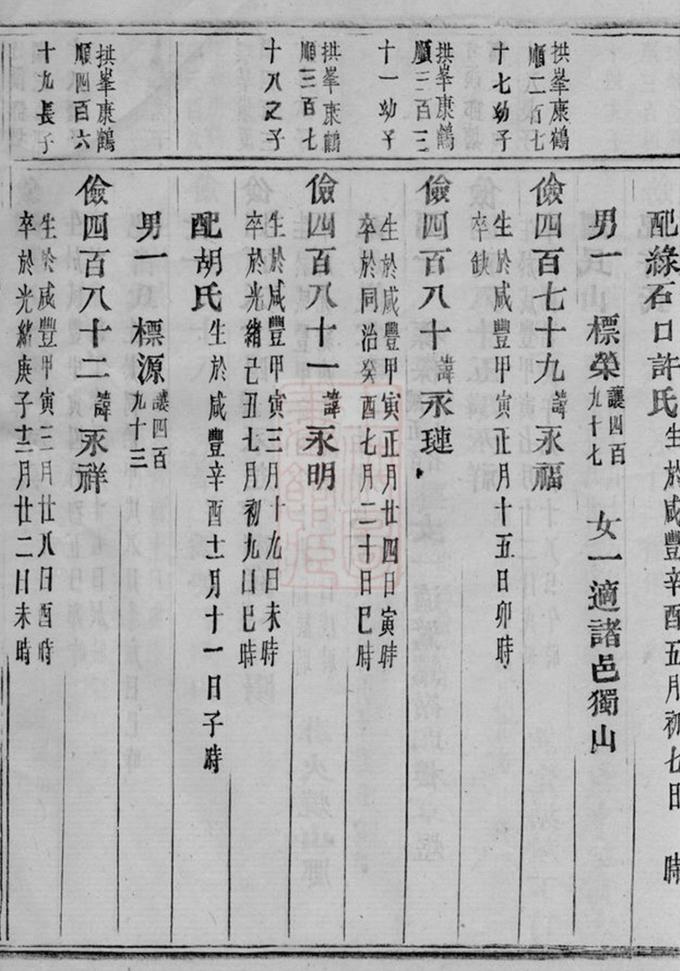 配緣石口許氏生於咸豐辛酉五月初七日 時
男一 標榮讓四百九十七 女一適諸邑獨山
拱峯康鶴順二百七十七幼子
儉四百七十九諱永福
生於咸豐甲寅正月十五日卯時
卒缺
拱峯康鶴順三百三十一幼子
儉四百八十諱永璉
生於咸豐甲寅正月廿四日寅時
卒於同治癸酉七月二十日巳時
拱峯康鶴順三百七十八之子
儉四百八十一諱永明
生於咸豐甲寅三月十九日未時
卒於光緒己丑七月初九日巳時
配胡氏生於咸豐辛酉十一月十一日子時
男一 標源讓四百九十三
拱峯康鶴順四百六十九長子
儉四百八十二諱永祥
生於咸豐甲寅三月廿八日酉時
卒於光緒庚子十二月廿二日未時